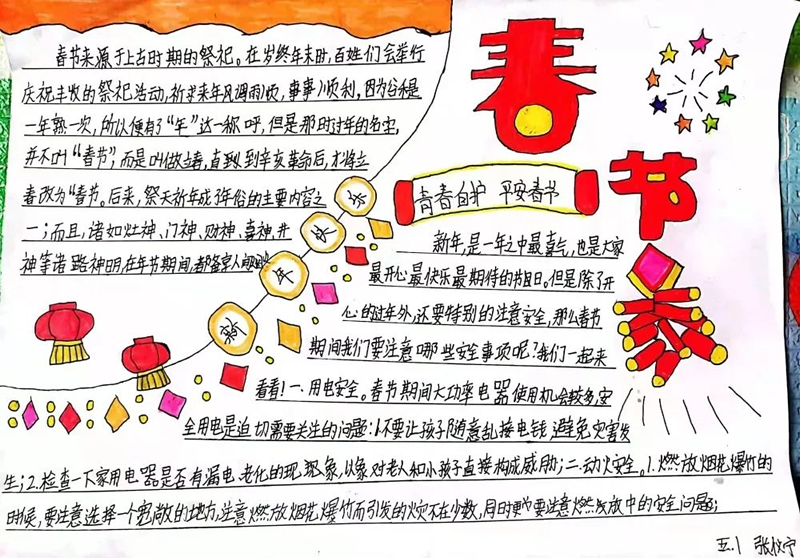 春节来源于上古时期的祭祀。在岁终年末时,百姓们会举行
庆祝丰收的祭祀活动,祈求来年风调雨顺,事事顺利,因为谷禾是
一年熟一次,所以便有了“年”这一称呼,但是那时过年的名字,
并不叫“春节”,而是叫做立春,直到到辛亥革命后,才将立
春改为“春节。后来,祭天祈年成了年俗的主要内容之
一;而且,诸如灶神、门神、财神、喜神、井
神等诸路神明,在年节期间,都备享人间
新年快乐
春节
青春自护 平安春节
新年,是一年之中最喜气,也是大家
最开心最快乐最期待的节日。但是除了开
心的过年外,还要特别的注意安全,那么春节
期间我们要注意哪些安全事项呢?我们一起来
看看!一、用电安全。春节期间大功率电器使用机会较多,安
全用电是迫切需要关注的问题:1.不要让孩子随意乱接电线,避免灾害发
生;2.检查一下家用电器是否有漏电、老化的现象,以免对老人和小孩子直接构成威胁;二、动火安全。1.燃放烟花爆竹的
时候,要注意选择一个宽敞的地方,注意燃放烟花爆竹而引发的火灾不在少数,同时更要注意燃放中的安全问题;
五.1 张仪宁